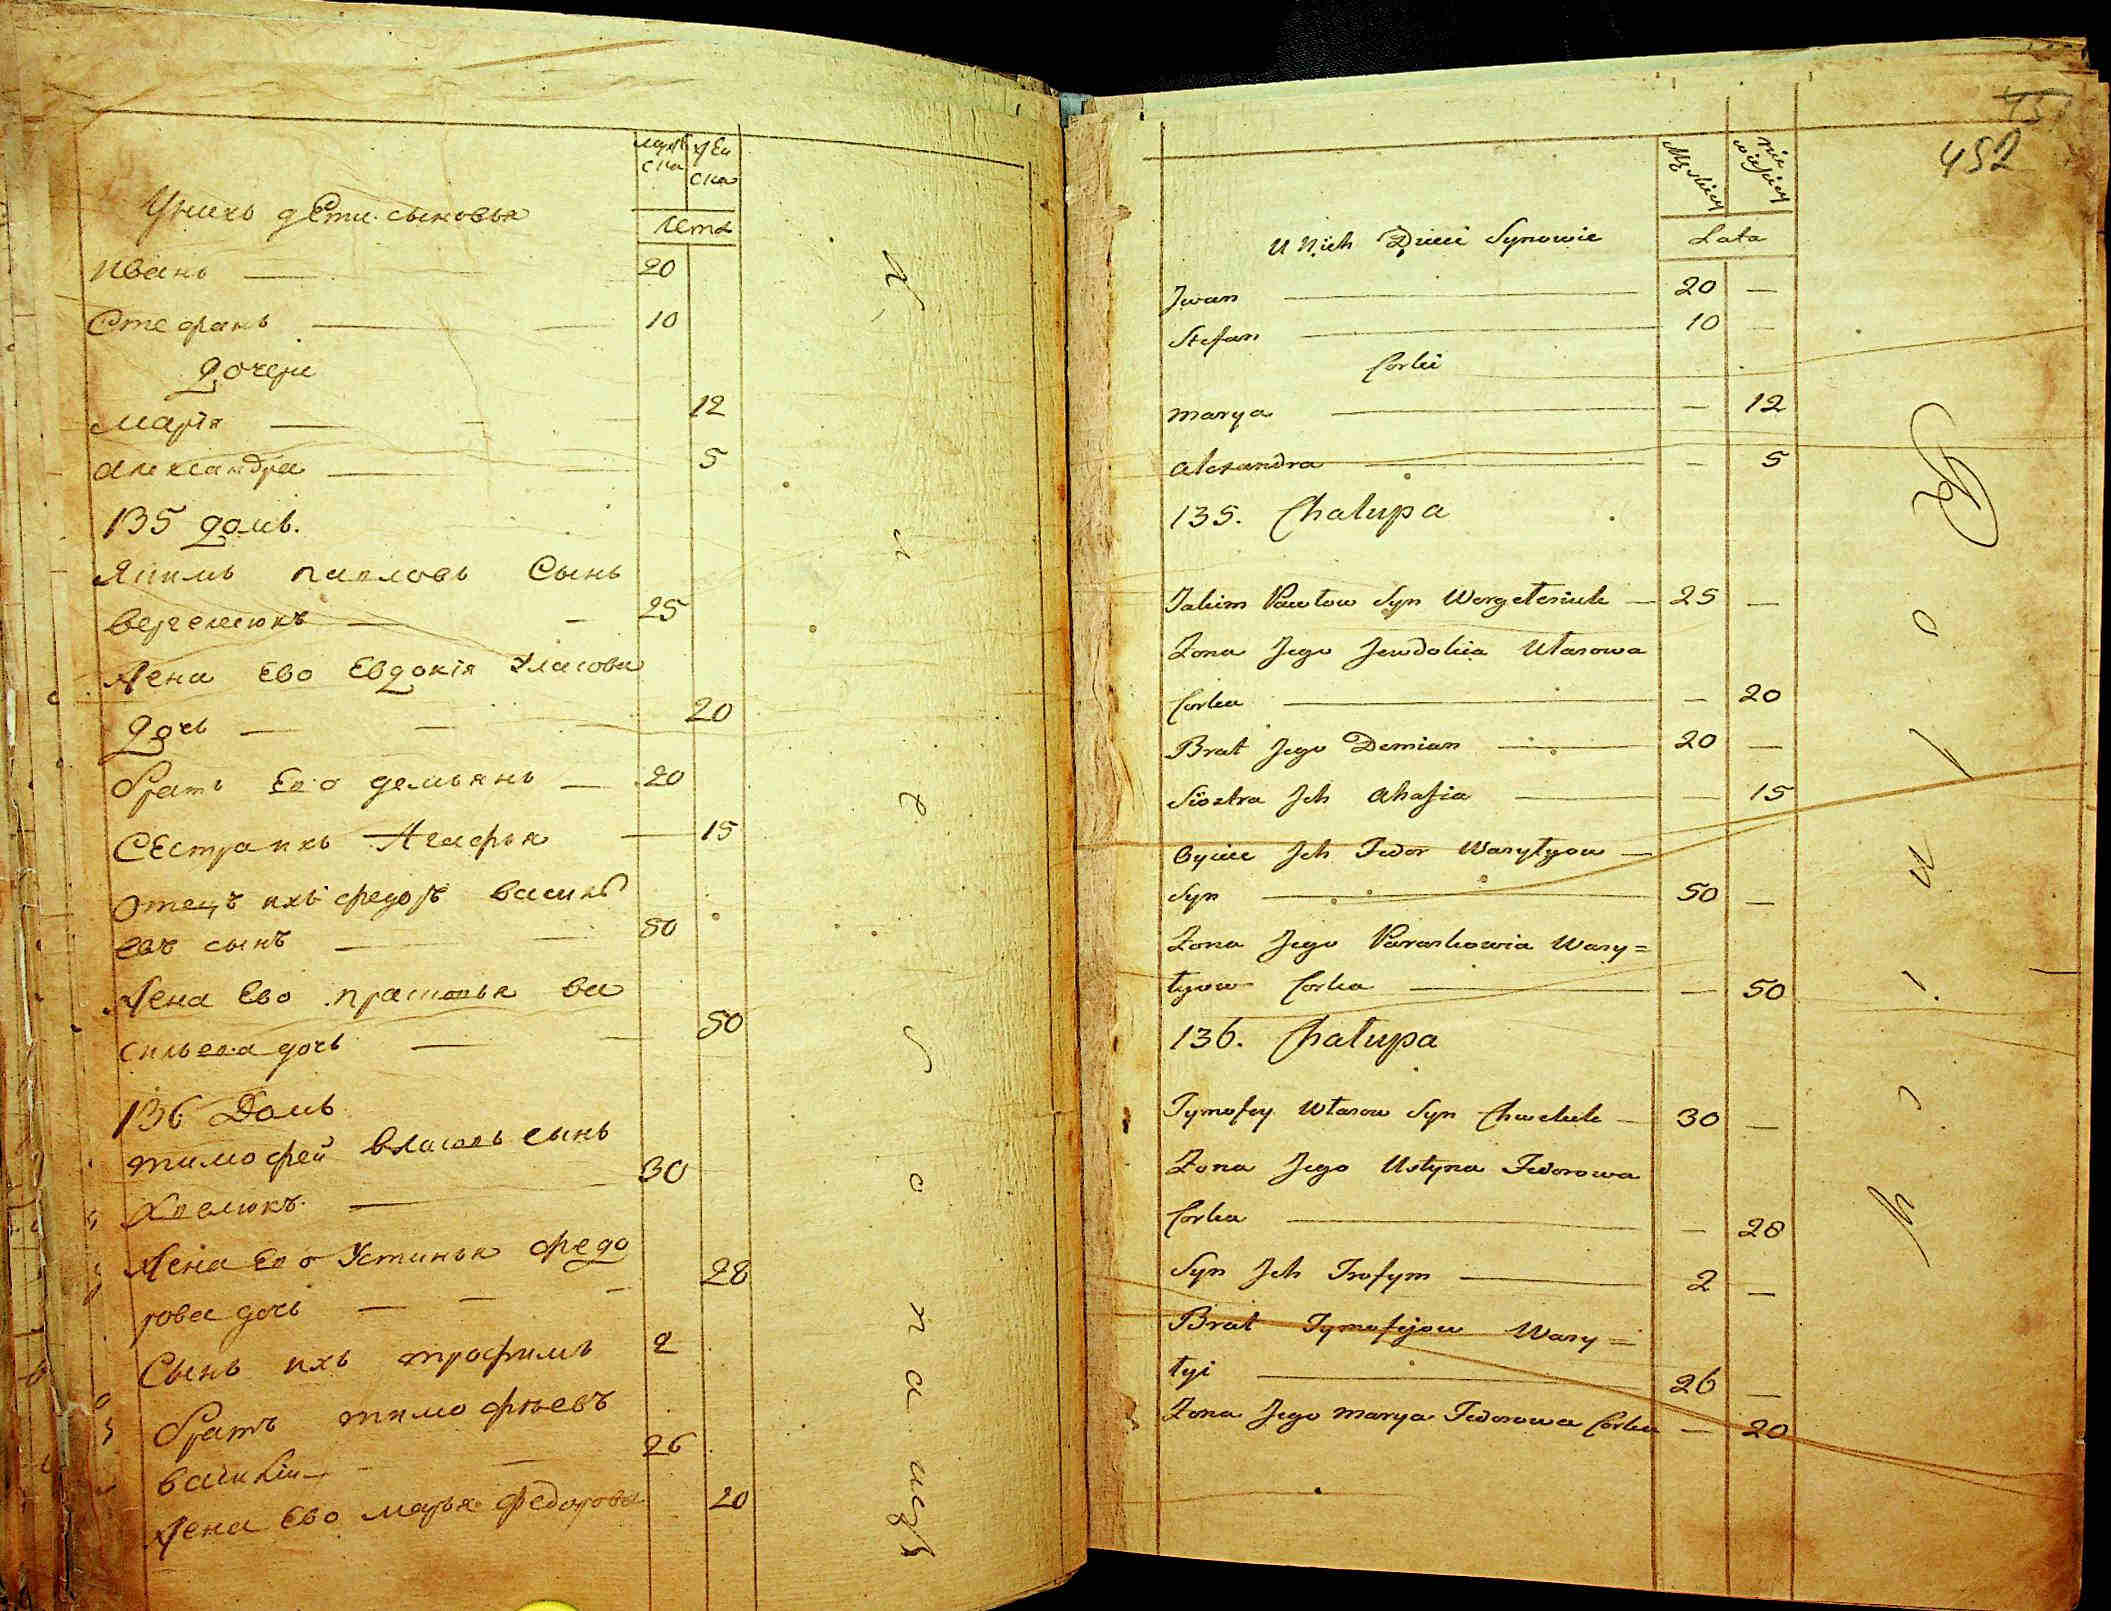 муж ска
жен ска
лета
Унихъ дети сыновья
иванъ — 20
Стефанъ — 10
дочери
марія — 12
александра — 5
135 домъ.
Якимъ павловъ Сынъ
вергелюкъ — 25
Жена Ево Евдокія Уласова
дочь — 20
братъ Ево демьянъ — 20
Сестра ихъ Агафья — 15
Отецъ ихъ федоръ василь
евъ сынъ — 50
Жена Ево прасковья ва
сильева дочь — 50
136 Домъ
тимофей власовъ сынъ
Хвелюкъ. — 30
Жена Ево Устинья федо
рова дочь — 28
Сынъ ихъ трофимъ 2
братъ тимофѣевъ
василій — 26
Жена Ево марья федорова 20
452
Lata
U Nich Dzieci Synowie
Jwan — 20 —
Stefan — 10 —
Corki
marya — — 12
alexandra — — 5
135. Chałupa
Jakim Pawłow Syn Wergeleniuk — 25 —
Zona Jego Jewdokia Ułasowa
Corka — — 20
Brat Jego Demian — 20 —
Siostra Jch ahafia — 15
Oyciec Jch Fedor Wasyłyow —
Syn — 50 —
Zona Jego Paraskowia Wasy=
łyow Corka — — 50
136. Chałupa
Tymofey Własow Syn Chweluk — 30 —
Zona Jego Ustyna Fedorowa
Corka — — 28
Syn Jch Trofym — 2 —
Brat Tymofejow Wasy=
łyi — 26 —
Zona Jego marya Fedorowa Corka — — 20